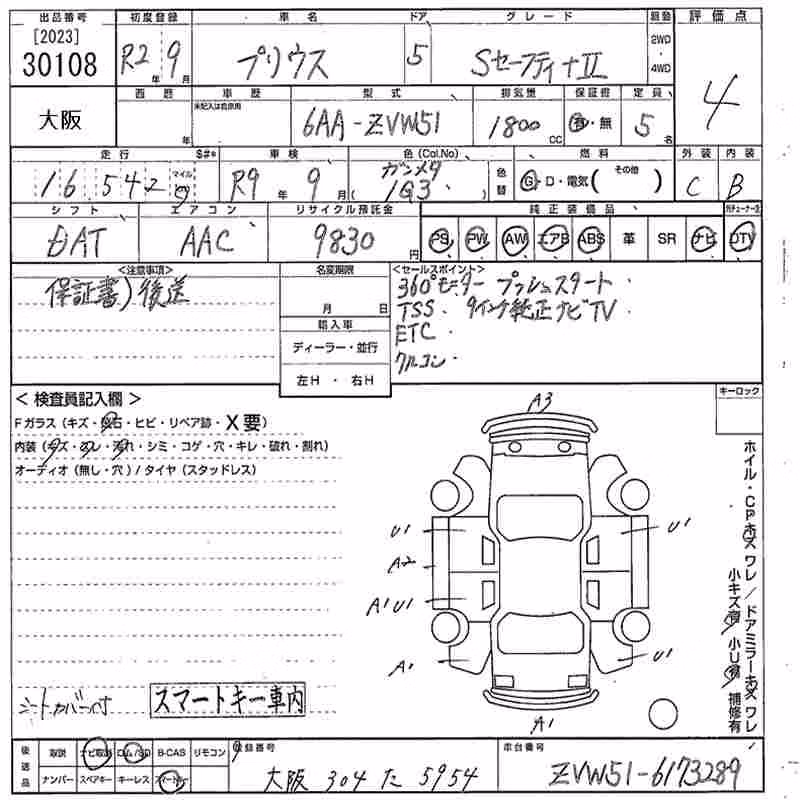 出品番号 初度登録 車名 ドア グレード 駆動 評価点
[2023] 30108 R2年 9月 プリウス 5 SセーフティナII 2WD・4WD 4
西暦 車歴 型式 排気量 保証書 定員
大阪 年 未記入は自家用 6AA-ZVW51 1800cc 有・無 5名
走行 S#* 車検 色(Col.No) 燃料 外装 内装
16,542 マイル R9年 9月 (ガンメタ 1G3) 色替 G・D・電気(その他) C B
シフト エアコン リサイクル預託金 純正装備品
DAT AAC 9830円 PS PW AW エアB ABS 革 SR ナビ DTV
<注意事項> 名変期限 <セールスポイント>
保証書)後送 月 日 360°モニター プッシュスタート
TSS. 9インチ純正ナビTV
輸入車 ETC
ディーラー・並行 クルコン
左H・右H
<検査員記入欄> キーロック
Fガラス(キズ・飛石・ヒビ・リペア跡・X要)
内装(キズ・汚れ・シミ・コゲ・穴・キレ・破れ・割れ)
オーディオ(無し・穴)/タイヤ(スタッドレス)
A3
U1 U1
A2
A1 U1
A1 U1
A1
ホイル・CPキズ ワレ/ドアミラーキズ ワレ
小キズ有 小U有 補修有
シートカバー付 スマートキー車内
後送品 取説 ナビ取説 ロム/SD B-CAS リモコン 登録番号 車台番号
ナンバー スペアキー キーレス スマートキー 大阪 304 た 5954 ZVW51-6173289